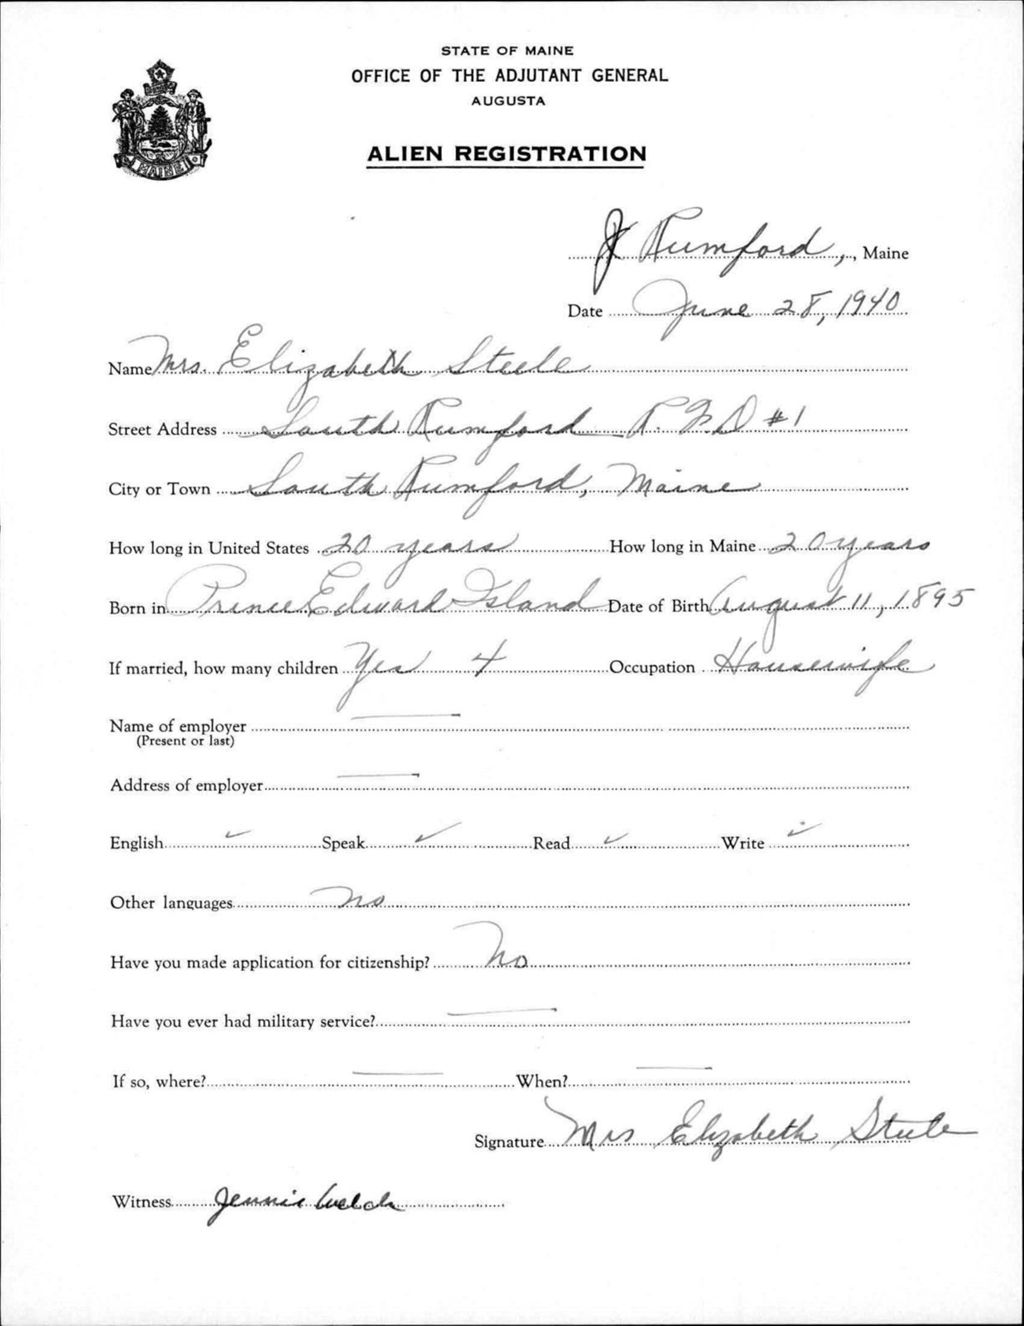 STATE OF MAINE
OFFICE OF THE ADJUTANT GENERAL
AUGUSTA
ALIEN REGISTRATION
MAINE
Rumford, , Maine
Date June 28, 1940
Name Mrs. Elizabeth Steele
Street Address South Rumford R.F.D #1
City or Town South Rumford, Maine
How long in United States 20 years How long in Maine 20 years
Born in Prince Edward Island Date of Birth August 11, 1895
If married, how many children Yes 4 Occupation Housewife
Name of employer —
(Present or last)
Address of employer —
English ✓ Speak ✓ Read ✓ Write ✓
Other languages No
Have you made application for citizenship? No
Have you ever had military service? —
If so, where? — When? —
Signature Mrs Elizabeth Steele
Witness Jennie Welch